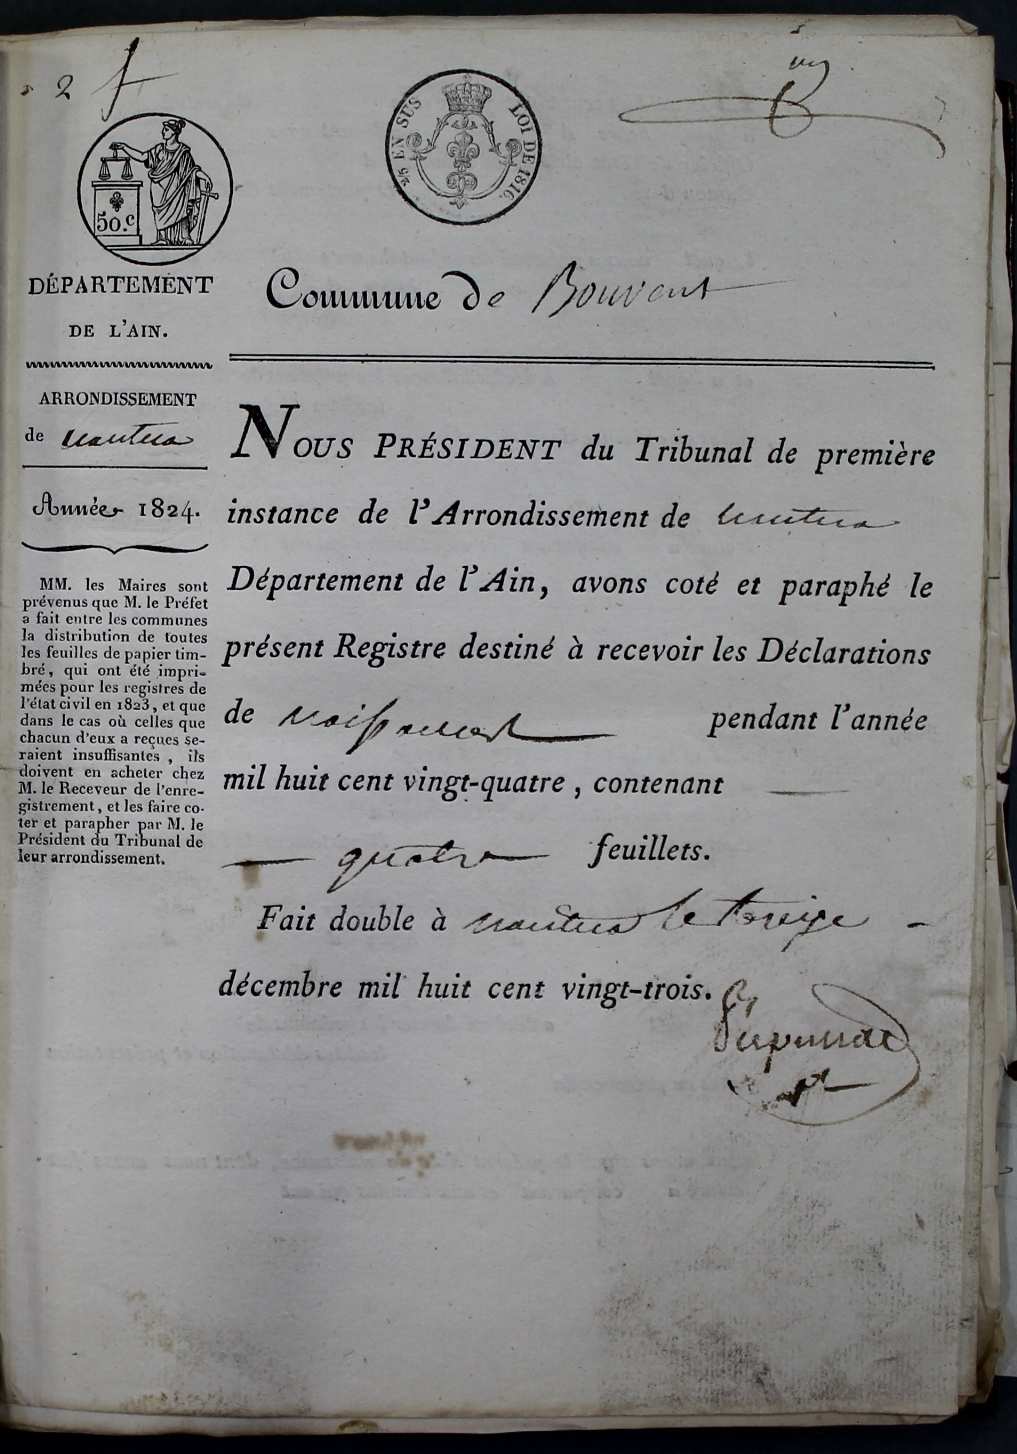 2
50.c
25 EN SUS LOI DE 1816.
DÉPARTEMENT
DE L'AIN.
Commune de Bouvent
ARRONDISSEMENT
de nantua
Année 1824.
MM. les Maires sont
prévenus que M. le Préfet
a fait entre les communes
la distribution de toutes
les feuilles de papier tim-
bré, qui ont été impri-
mées pour les registres de
l'état civil en 1823, et que
dans le cas où celles que
chacun d'eux a reçues se-
raient insuffisantes, ils
doivent en acheter chez
M. le Receveur de l'enre-
gistrement, et les faire co-
ter et parapher par M. le
Président du Tribunal de
leur arrondissement.
NOUS PRÉSIDENT du Tribunal de première
instance de l'Arrondissement de nantua
Département de l'Ain, avons coté et paraphé le
présent Registre destiné à recevoir les Déclarations
de naissances pendant l'année
mil huit cent vingt-quatre, contenant
quatre feuillets.
Fait double à nantua le treize
décembre mil huit cent vingt-trois.